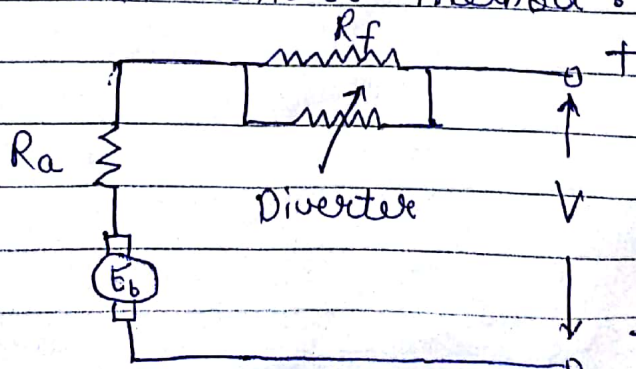 Rf
+
Ra
Diverter
V
Eb